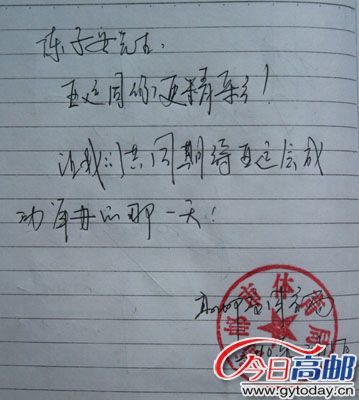 陈子安先生:
亚运因你更精彩!
让我们共同期待亚运会成
功召开的那一天!
高邮市体育局
今日高邮
www.gytoday.cn